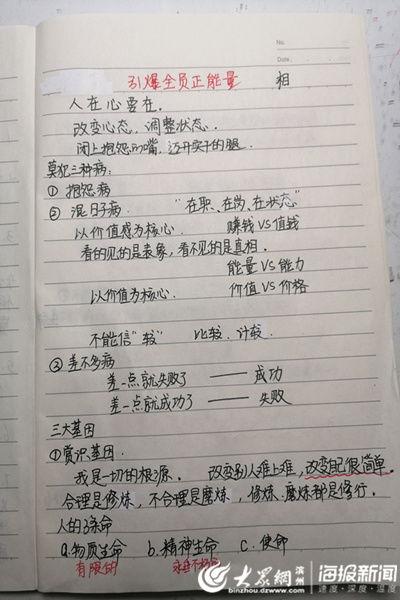 No.
Date.
引爆全员正能量 相
人在心要在.
改变心态,调整状态.
闭上抱怨的嘴,迈开实干的腿.
莫犯三种病:
① 抱怨病
② 混日子病. "在职、在岗、在状态"
以价值感为核心. 赚钱VS值钱
看的见的是表象,看不见的是真相.
能量VS能力
以价值为核心. 价值VS价格
不能信"较" 比较、计较.
③ 差不多病
差一点就失败了 —— 成功
差一点就成功了 —— 失败
三大基因
①赏识基因.
我是一切的根源. 改变别人难上难,改变自己很简单.
合理是修炼,不合理是磨炼,修炼.磨炼都是修行.
人的3条命
a.物质生命 b.精神生命 c.使命
有限的
大众网 滨州 海报新闻
binzhou.dzwww.com 速度·深度·温度